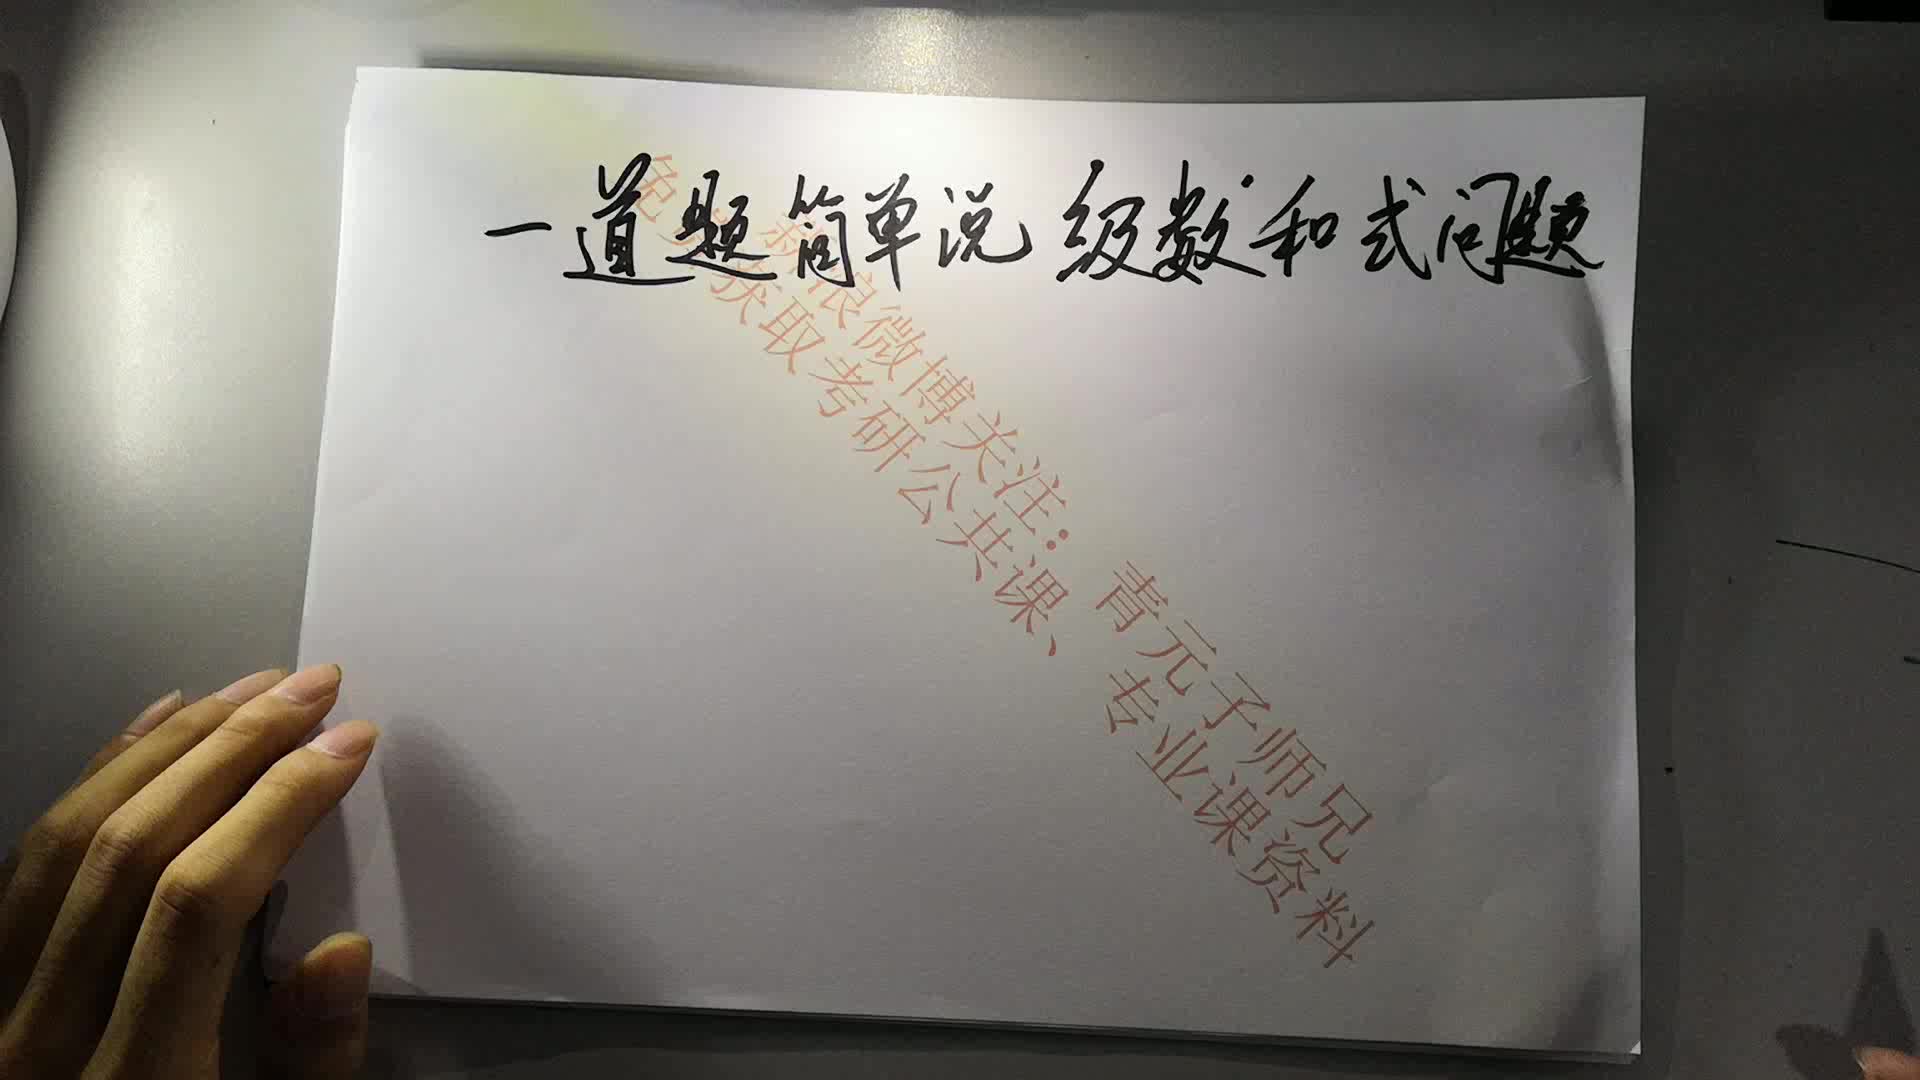 一道题简单说 级数和式问题
新浪微博关注：青元子师兄
免费获取考研公共课、专业课资料